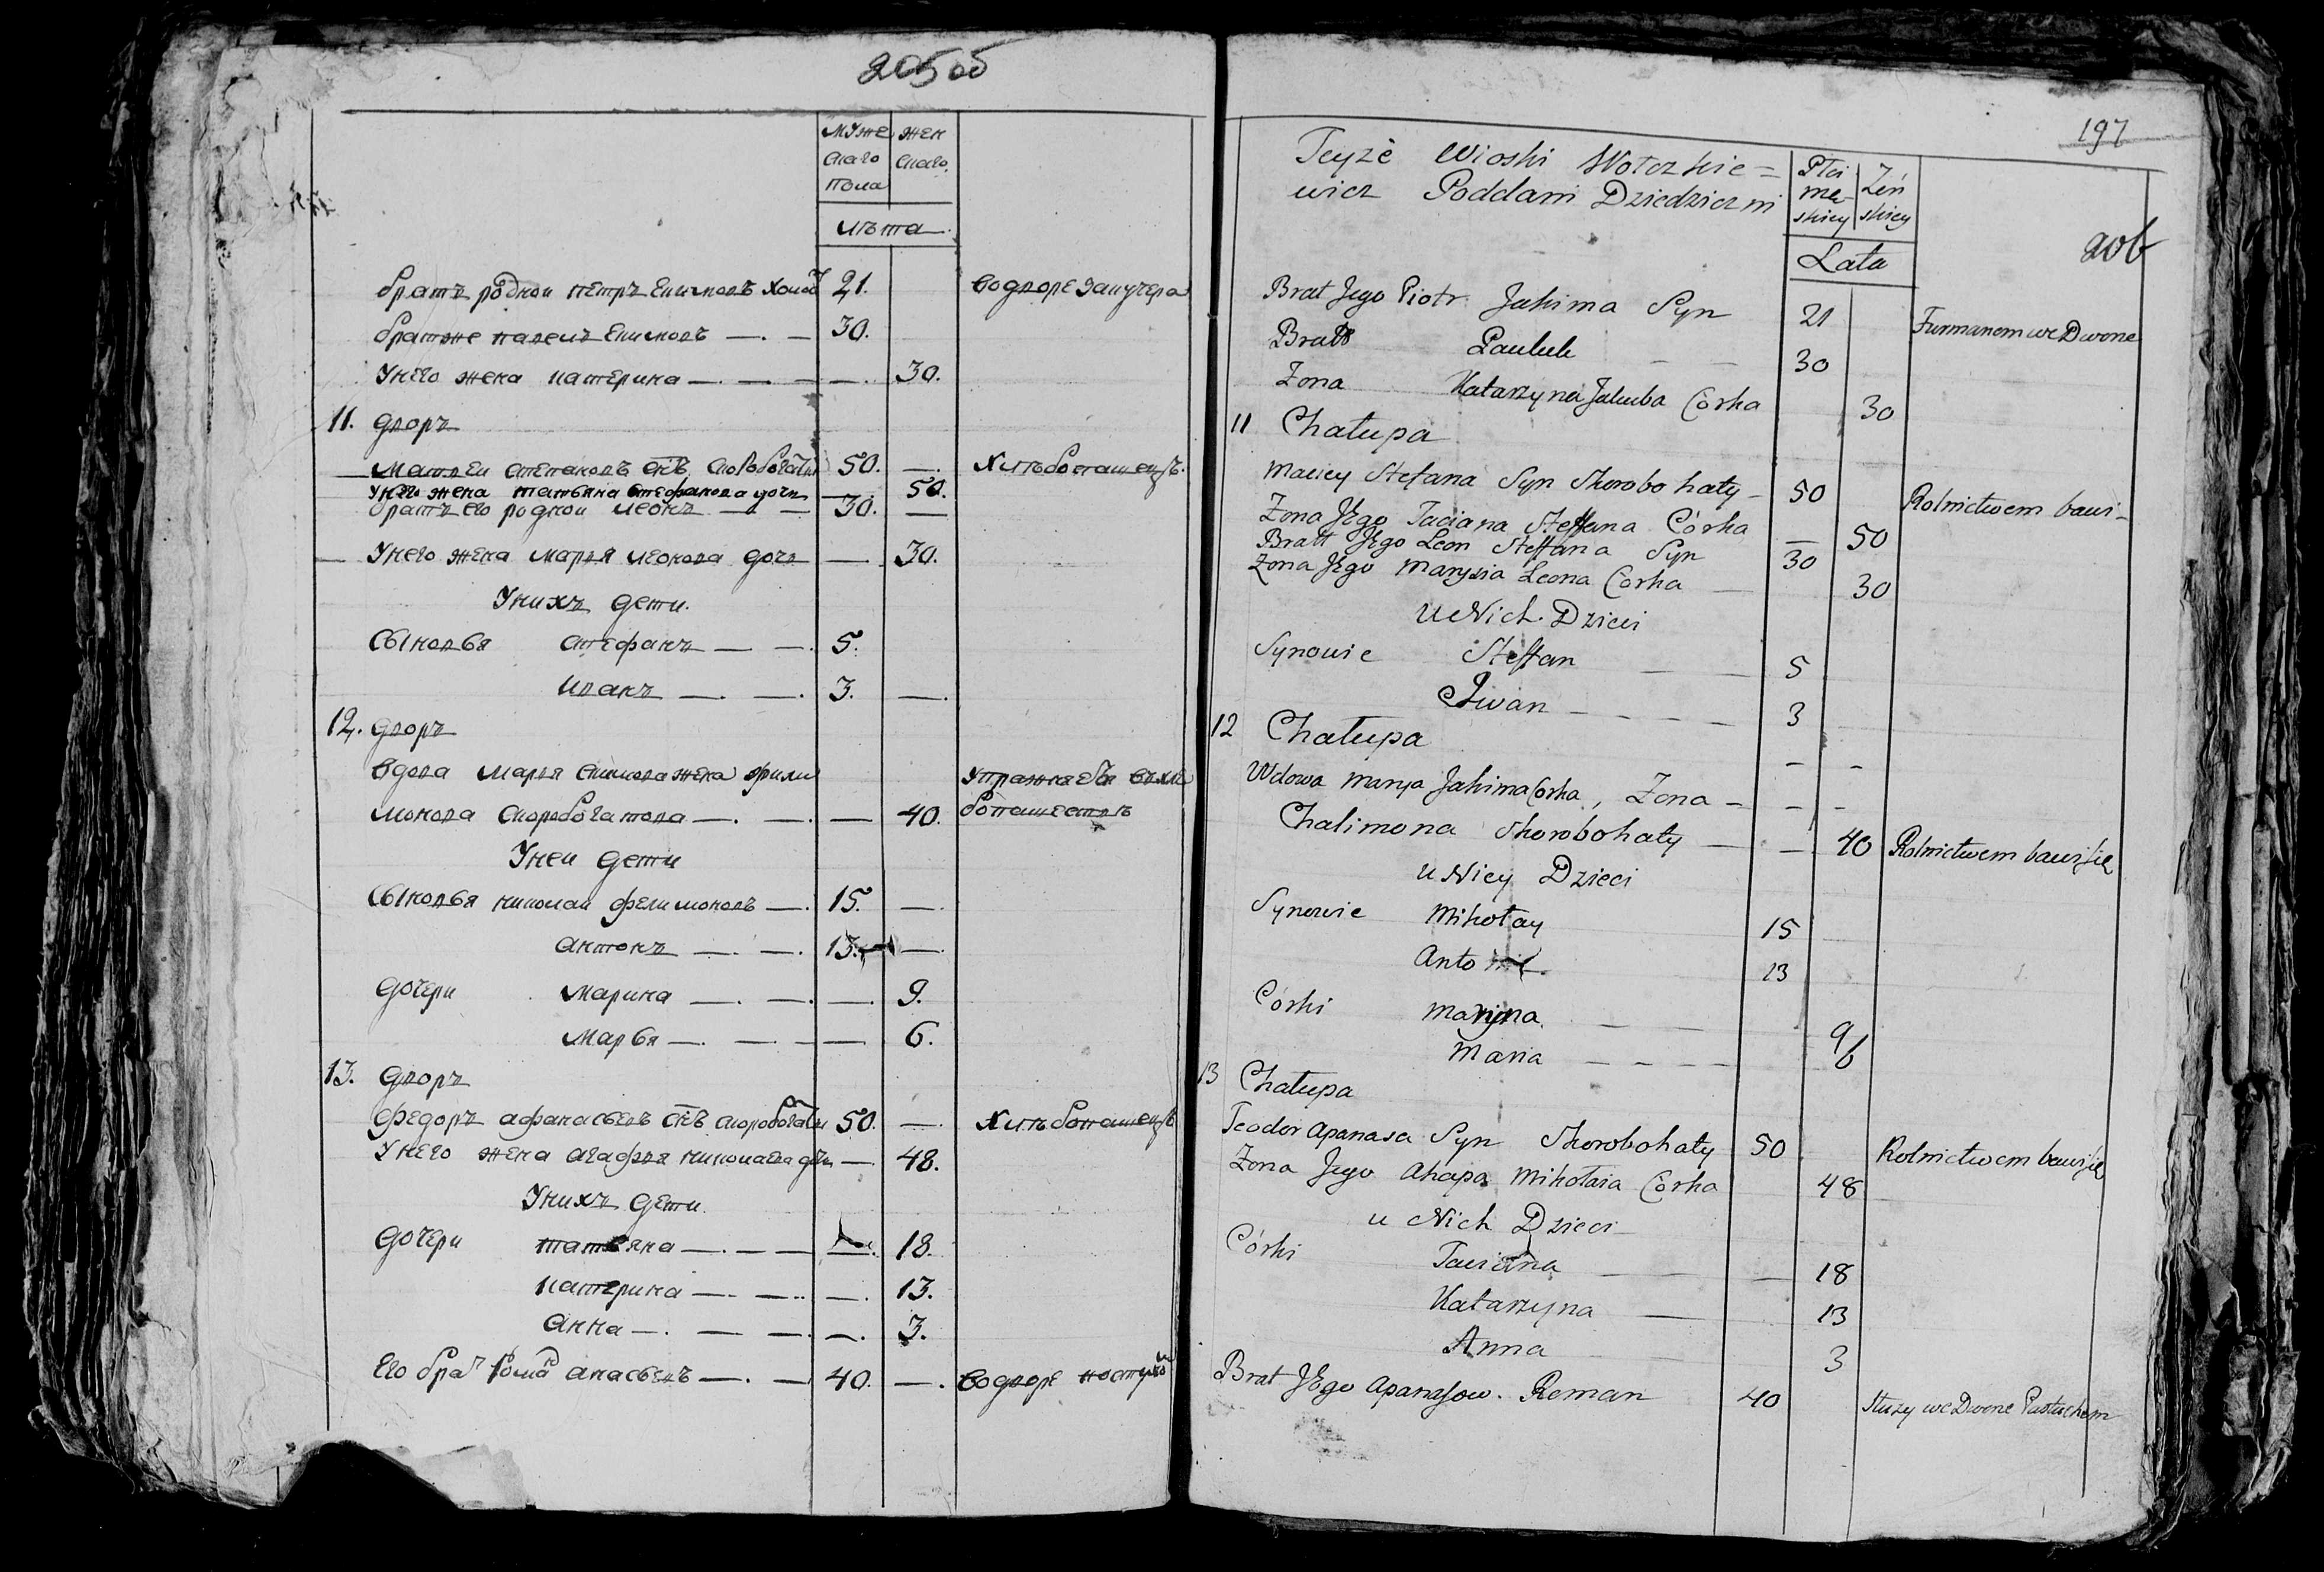 205 об
муже жен
скаго скаго
пола
лѣта
братъ роднои петръ Екимовъ 21. во дворе за кучера
братже павелъ Екимовъ — 30.
У него жена катерина — 30.
11. дворъ
Матвеи степановъ снъ скоробогаты 50. — хлѣбопашецъ.
У него жена татьяна стефанова дочь — 50.
братъ его роднои леонъ — 30. —
У него жена марья леонова дочь — 30.
У нихъ дети.
Сыновья стефанъ — 5.
иванъ — 3. —
12. дворъ
вдова марья екимова жена фили
монова скоробогатова — 40. бопашествъ
У неи дети
Сыновья николаи филимоновъ — 15. —
антонъ — 13. —
дочери марина — 9.
марья — 6.
13. дворъ
федоръ афанасьевъ снъ скоробогаты 50. — хлѣбопашецъ
У него жена агафья николаева дчь — 48.
У нихъ дети.
дочери татьяна — 18.
катерина — 13.
анна — 3.
Его брат романъ анасьевъ — 40. — во дворе
197
206
Teyże Wioski Wołczkie=
wicz Poddani Dziedziczni
Płci Żeń
męskiey skiey
Lata
Brat Jego Piotr Jakima Syn 21 Furmanem we Dworze
Bratt Pauluk — 30
Żona Katarzyna Jakuba Córka 30
11 Chałupa
Maciey Stefana Syn Skorobohaty — 50 Rolnictwem bawi —
Żona JEgo Taciana Steffana Córka — 50
Bratt JEgo Leon Steffana Syn 30
Żona JEgo Marysia Leona Córka — 30
u Nich Dzieci
Synowie Steffan — 5
Jwan — 3
12 Chałupa
Wdowa Marya Jakima Córka, Żona —
Chalimona Skorobohaty — 40 Rolnictwem bawi się
u Niey Dzieci
Synowie Mikołay 15
Antoni 13
Córki Maryna — 9
Maria — 6
13 Chałupa
Teodor Apanasa Syn Skorobohaty 50 Rolnictwem bawi się
Żona Jego Ahapa Mikołaia Córka 48
u Nich Dzieci
Córki Taciana — 18
Katarzyna — 13
Anna 3
Brat JEgo Apanasow. Roman 40 Służy we Dworze Pastuchem